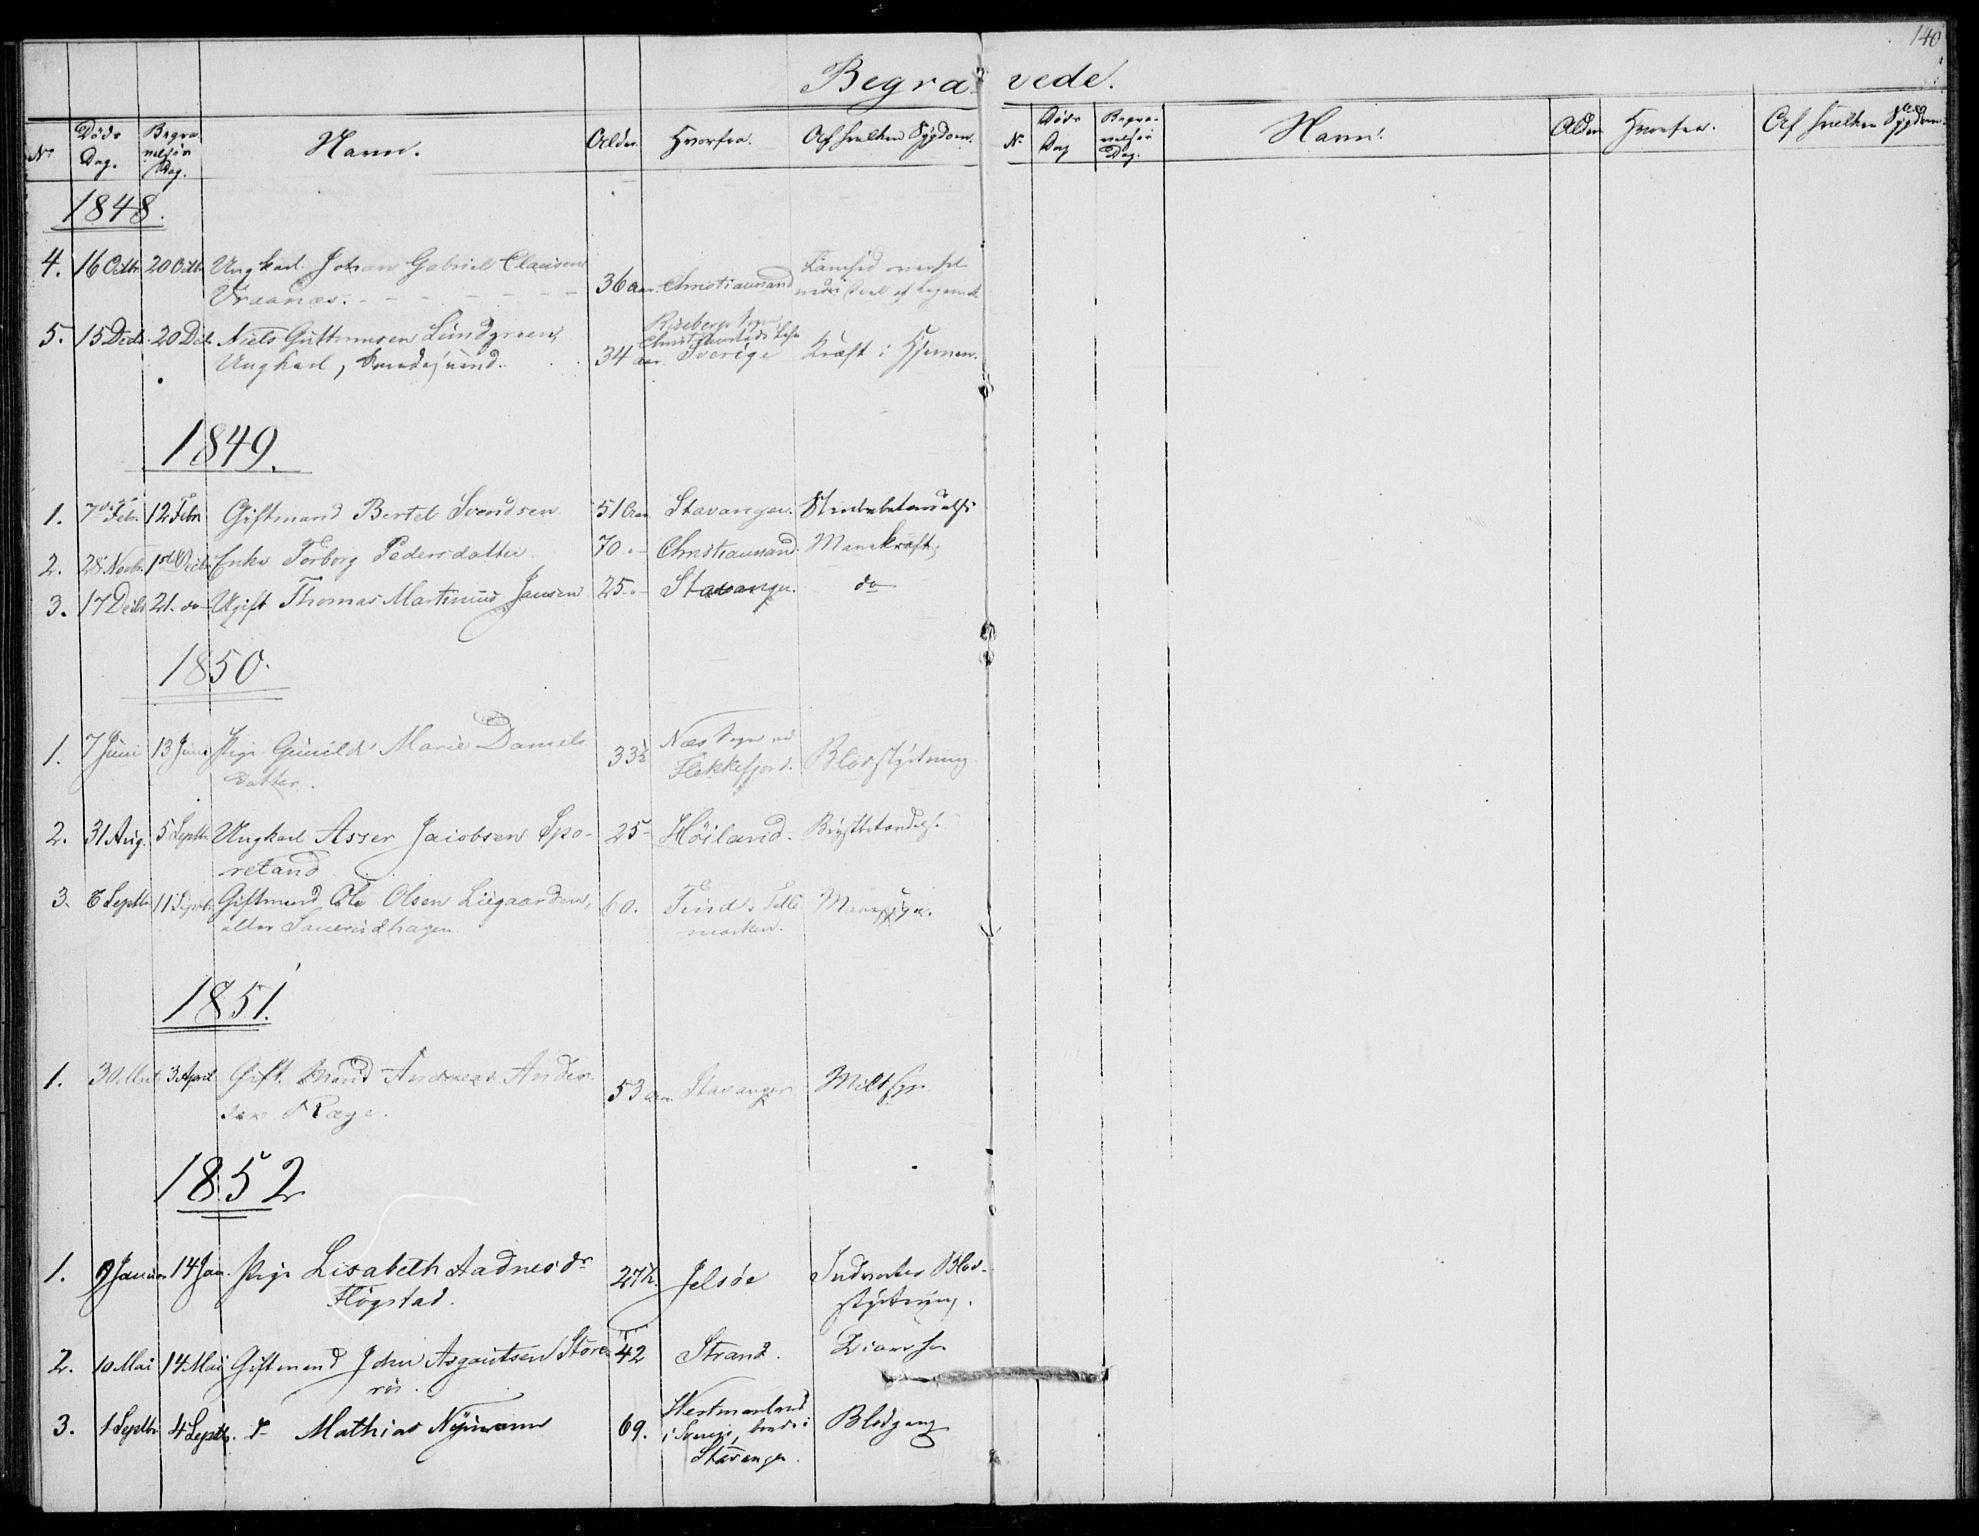 140
Begravede.
No Døds Dag. Begravelses Dag. Navn. Alder. Hvorfra. Af hvilken Sygdom.
No Døds Dag Begravelses Dag. Navn. Alder Hvorfra. Af hvilken Sygdom.
1848.
4. 16 Octbr 20 Octbr Ungkarl Johan Gabriel Clausen
Vraanæs. 36 Aar. Christiansand
5. 15 Decbr. 20 Decbr Niels Guttormsen Lundgreen,
Ungkarl, 34 Aar. Sverige Kræft i Hjernen.
1849.
1. 7de Febr. 12 Febr Giftmand Bertel Svendsen 51 Aar Stavanger.
2. 28 Novbr. 1ste Decbr Enke Torborg Pedersdatter. 70 " - Christiansand. Mavekræft.
3. 17 Decbr 21. do Ugift Thomas Martinus Jansen 25 " - Stavanger. do
1850.
1. 7 Juni 13 Juni Pige Gunild Marie Daniels
datter. 33½ Næs Sogn ved
Flekkefjord. Blodstyrtning
2. 31 Aug. 5 Septbr Ungkarl Asser Jacobsen Spo-
retand 25 - Höiland. Brystbetændelse
3. 6 Septbr 11 Septbr Giftmand Ole Olsen Liegaarden,
eller 60. Tind i Telle
marken.
1851.
1. 30 Mart 3 April Gift. Mand Andreas Ander
sen Ræge. 53 Aar. Stavanger
1852
1. 9 Januar 14 Jan. Pige Lisabeth Aadnesdr
Flögstad. 27½. Jelsöe Indvortes Blod-
styrtning.
2. 10 Mai 14 Mai Giftmand John Asgautsen Store-
42 Strand. Diarrhe
3. 1 Septbr 4 Septbr. do Mathias Nymann 69. Westmanland
i Sverig, boede i
Stavanger. Blodgang